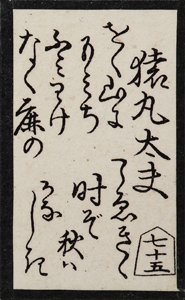 猿丸大夫
をく山に
もみち
ふみわけ
なく鹿の
こゑきく
時ぞ
秋ハ
かなしき
七十五